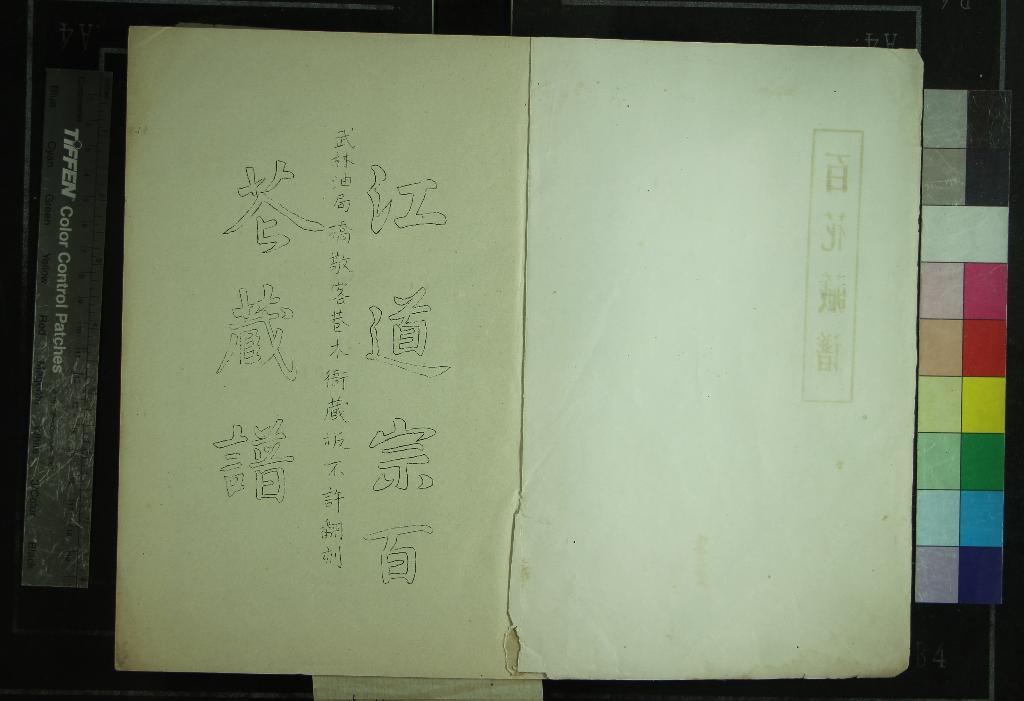 百花藏譜
江道宗百
武林油局橋敬客巷木衙蔵板不許翻刻
芲蔵譜
TIFFEN Color Control Patches
Blue Cyan Green Yellow Red Magenta
A4
A4
B4